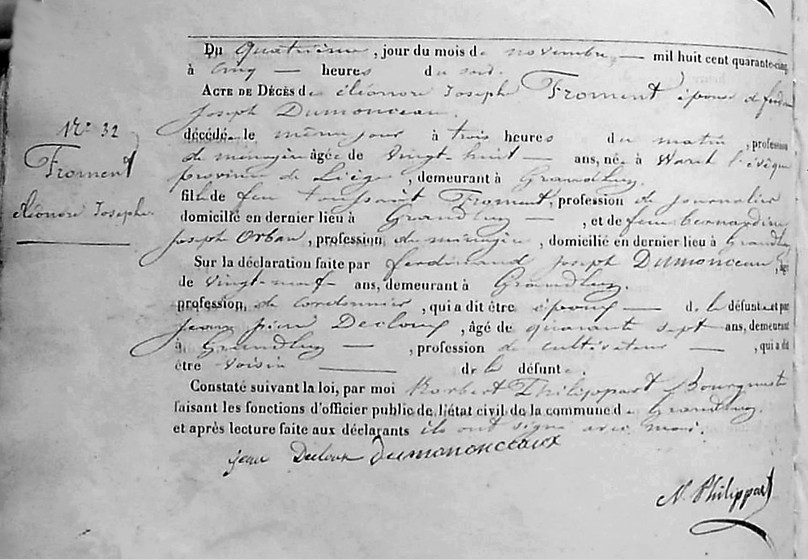 Du quatrième, jour du mois de novembre mil huit cent quarante-cinq
à cinq heures du soir.
ACTE DE DÉCÈS de éléonore Joseph Froment épouse de
Joseph Dumonceau.
N° 32
Froment
éléonore Josephe
décédée le même jour à trois heures du matin, profession
de ménagère âgée de vingt-huit ans, née à Waret l'évêque
province de Liège, demeurant à Grandleez.
fille de feu toussaint Froment, profession de journalier
domicilié en dernier lieu à Grandleez, et de feue bernardine
Joseph Orban, profession de ménagère, domicilié en dernier lieu à Grandleez
Sur la déclaration faite par ferdinand Joseph Dumonceau, âgé
de vingt-neuf ans, demeurant à Grandleez.
profession de cordonnier, qui a dit être époux de la défunte et par
Jean Decloux, âgé de quarante sept ans, demeurant
à Grandleez, profession de cultivateur, qui a dit
être voisin de la défunte.
Constaté suivant la loi, par moi Norbert Philippart Bourgmestre
faisant les fonctions d'officier public de l'état civil de la commune de Grandleez.
et après lecture faite aux déclarants ils ont signé avec moi.
jean Decloux dumononceaux
N. Philippart